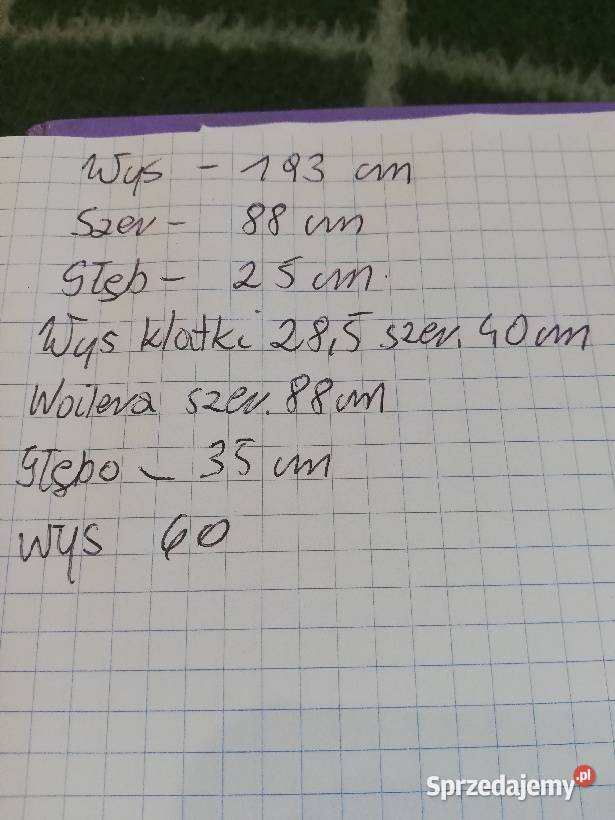 Wys - 193 cm
Szer - 88 cm
Głęb - 25 cm.
Wys klatki 28,5 szer. 40cm
Woilera szer. 88cm
Głębo - 35 cm
Wys 60
Sprzedajemy.pl